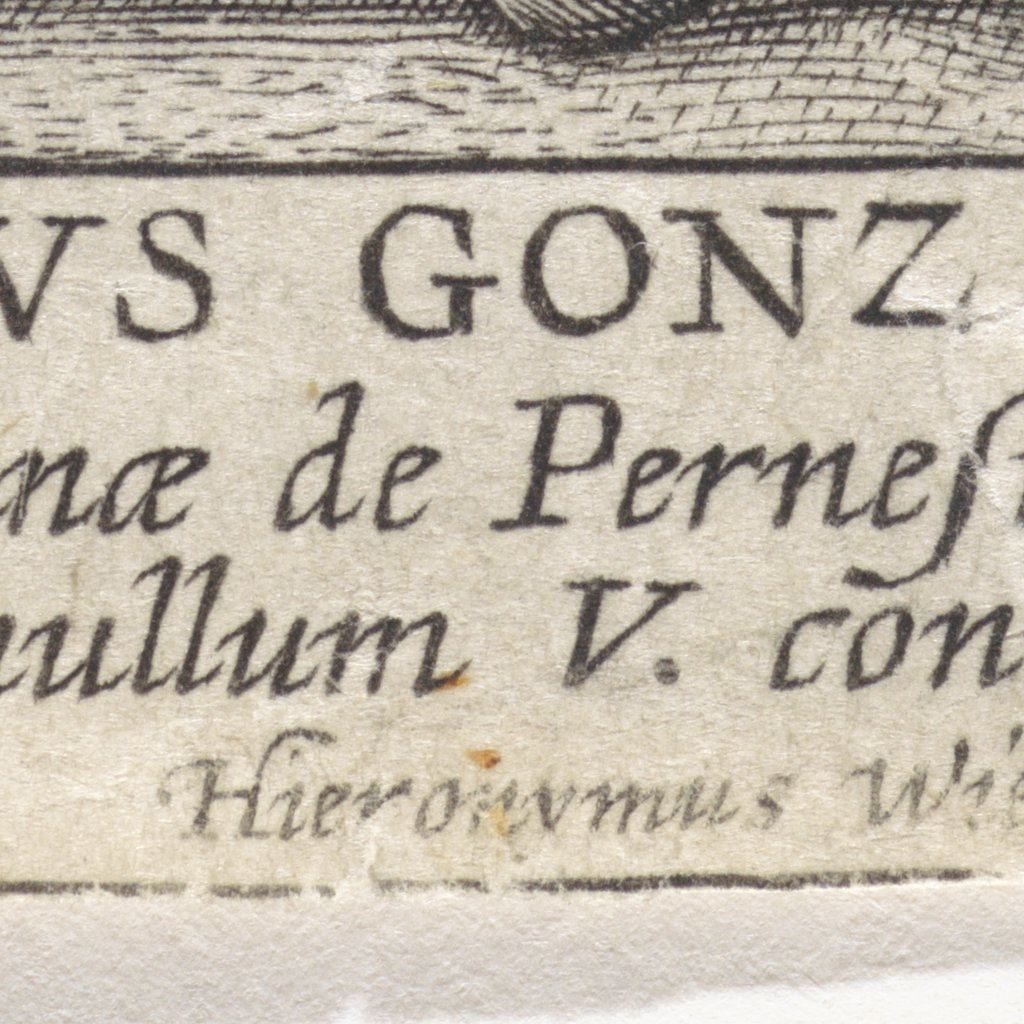 VS GONZ
næ de Perneſt
nullum V. cōn
Hieronymus Wie